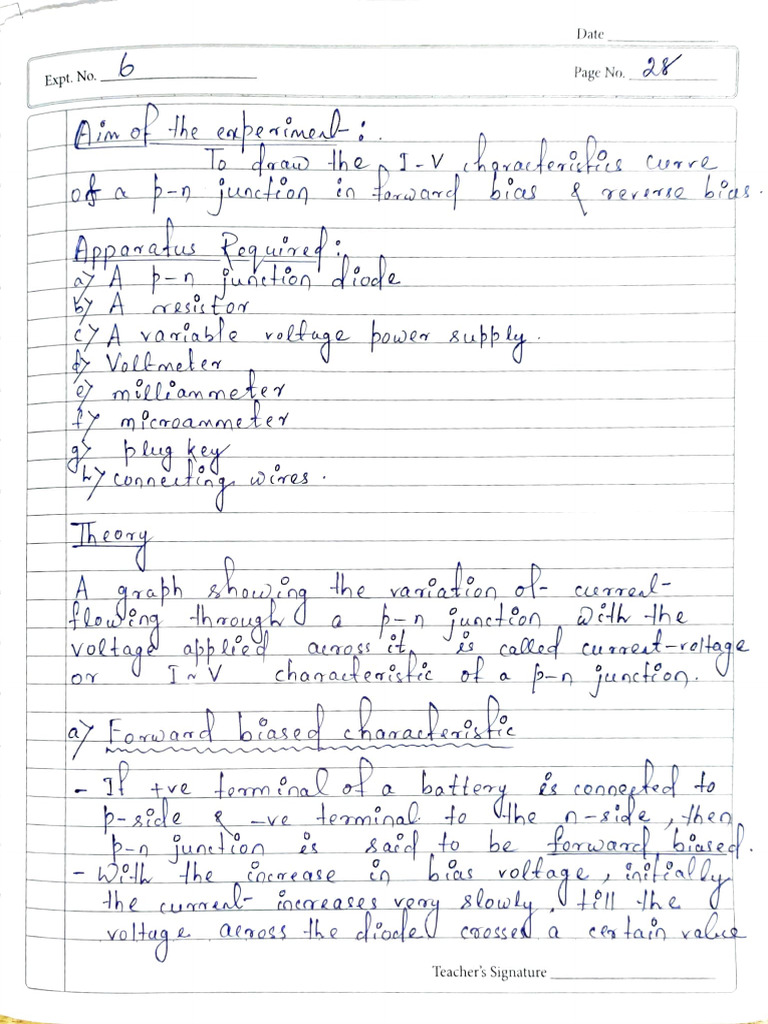 Date
Expt. No. 6
Page No. 28
Aim of the experiment :
To draw the I-V characteristics curve
of a p-n junction in forward bias & reverse bias.
Apparatus Required :
a) A p-n junction diode
b) A resistor
c) A variable voltage power supply.
d) Voltmeter
e) milliammeter
f) microammeter
g) plug key
h) connecting wires.
Theory
A graph showing the variation of current
flowing through a p-n junction with the
voltage applied across it, is called current-voltage
or I~V characteristic of a p-n junction.
a) Forward biased characteristic
- If +ve terminal of a battery is connected to
p-side & -ve terminal to the n-side, then
p-n junction is said to be forward biased.
- With the increase in bias voltage, initially
the current increases very slowly, till the
voltage across the diode crosses a certain value
Teacher's Signature